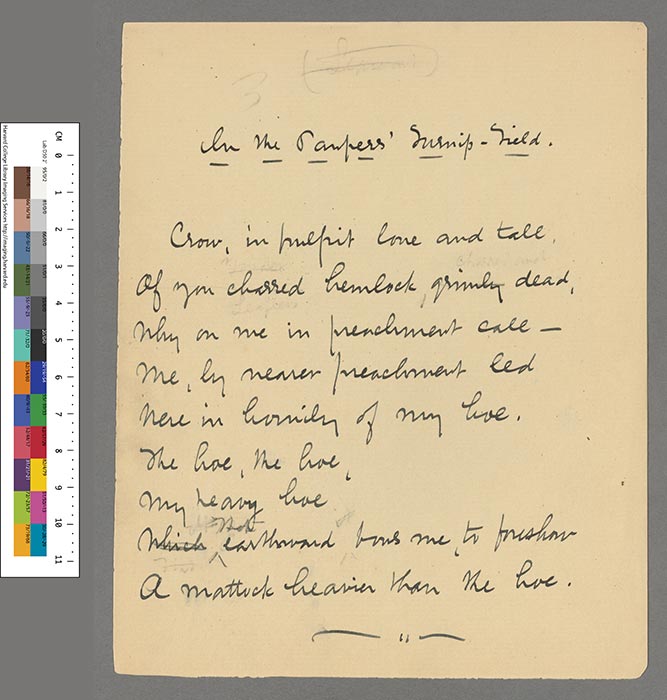 3
In the Paupers' Turnip-Field.
Crow, in pulpit lone and tall,
Of yon charred hemlock, grimly dead,
Why on me in preachment call —
Me, by nearer preachment led
Here in homily of my hoe.
The hoe, the hoe,
My heavy hoe
Which That earthward bows me, to foreshow
A mattock heavier than the hoe.
CM 0 1 2 3 4 5 6 7 8 9 10 11
Harvard College Library Imaging Services http://imaging.harvard.edu